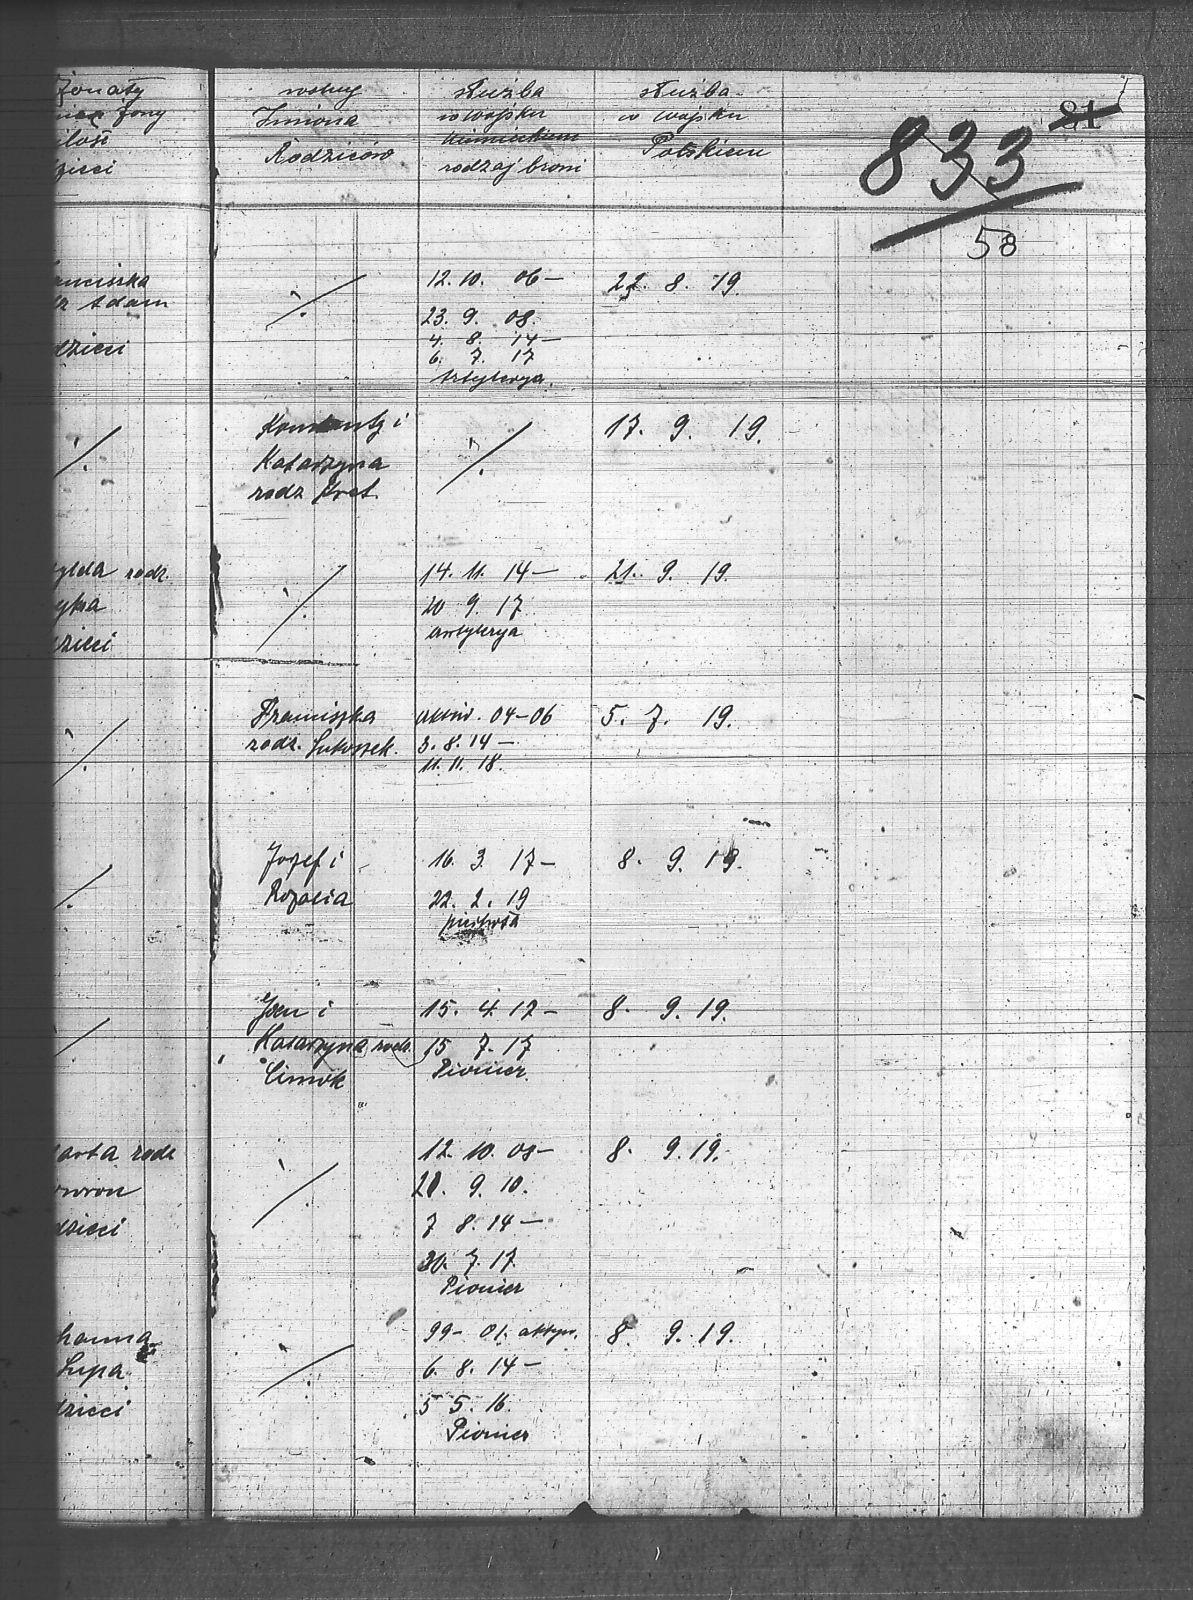 żonaty wolny służba służba
żony Imiona w wojsku w wojsku
ilość Rodziców niemieckiem Polskiem
dzieci rodzaj broni
81
833
58
12. 10. 06 – 22. 8. 19.
dz Adam
23. 9. 08.
dzieci 4. 8. 14 –
6. 7. 17
i 17. 9. 19.
Katarzyna
rodz Kret.
rodz. 14. 11. 14 – 21. 9. 19.
20 9. 17
dzieci artylerya
Franciszka 04–06 5. 7. 19.
rodz. 3. 8. 14 –
11. 11. 18.
Jozef i 16. 3. 17 – 8. 9. 19.
Rozalia 22. 2. 19
piechota
Jan i 15. 4. 17 – 8. 9. 19.
Katarzyna rodz. 15 7. 17
Cimok Pionier.
arta rodz 12. 10. 08 – 8. 9. 19.
wron 20. 9. 10.
dzieci 7 8. 14 –
30. 7. 17.
Pionier
hanna 99 – 01. aktyw. 8 9. 19.
Lupa 6. 8. 14 –
dzieci 5 5. 16.
Pionier